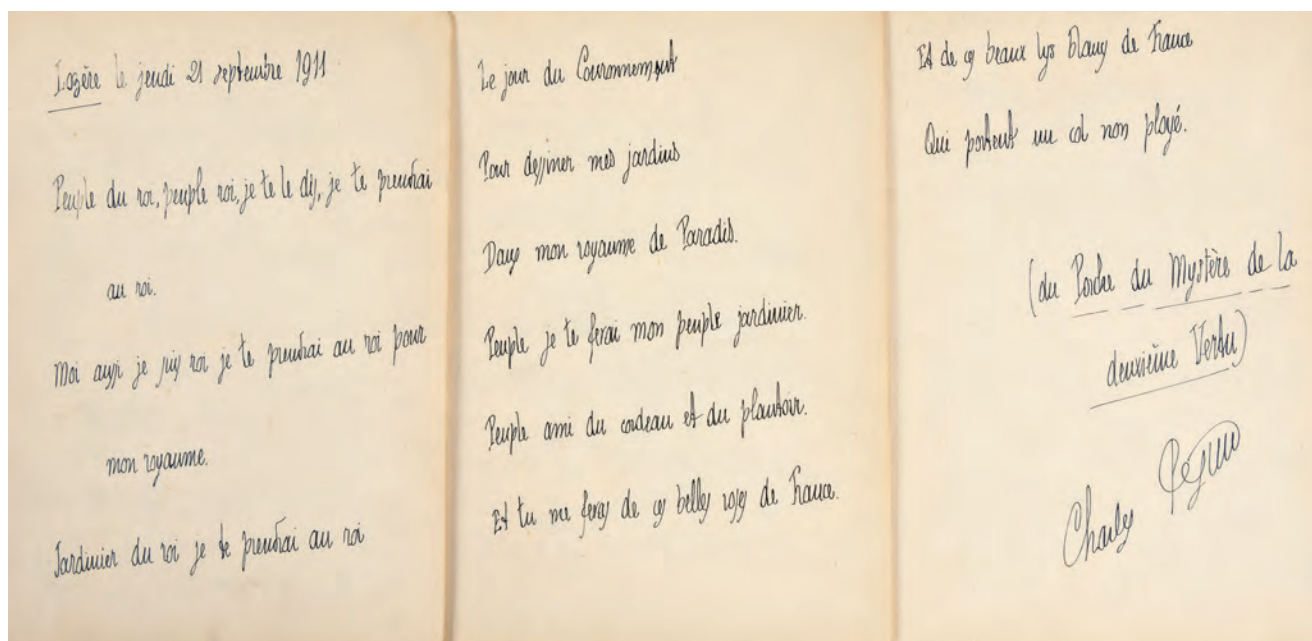 Lozère le jeudi 21 septembre 1911.
Peuple du roi, peuple roi, je te le dis, je te prendrai
au roi.
Moi aussi je suis roi je te prendrai au roi pour
mon royaume.
Jardinier du roi je te prendrai au roi
Le jour du Couronnement
Pour dessiner mes jardins
Dans mon royaume de Paradis.
Peuple je te ferai mon peuple jardinier.
Peuple ami du cordeau et du plantoir.
Et tu me feras de ces belles roses de France.
Et de ces beaux lys blancs de France
Qui portent un col non ployé.
(du Porche du Mystère de la
deuxième Vertu)
Charles Péguy